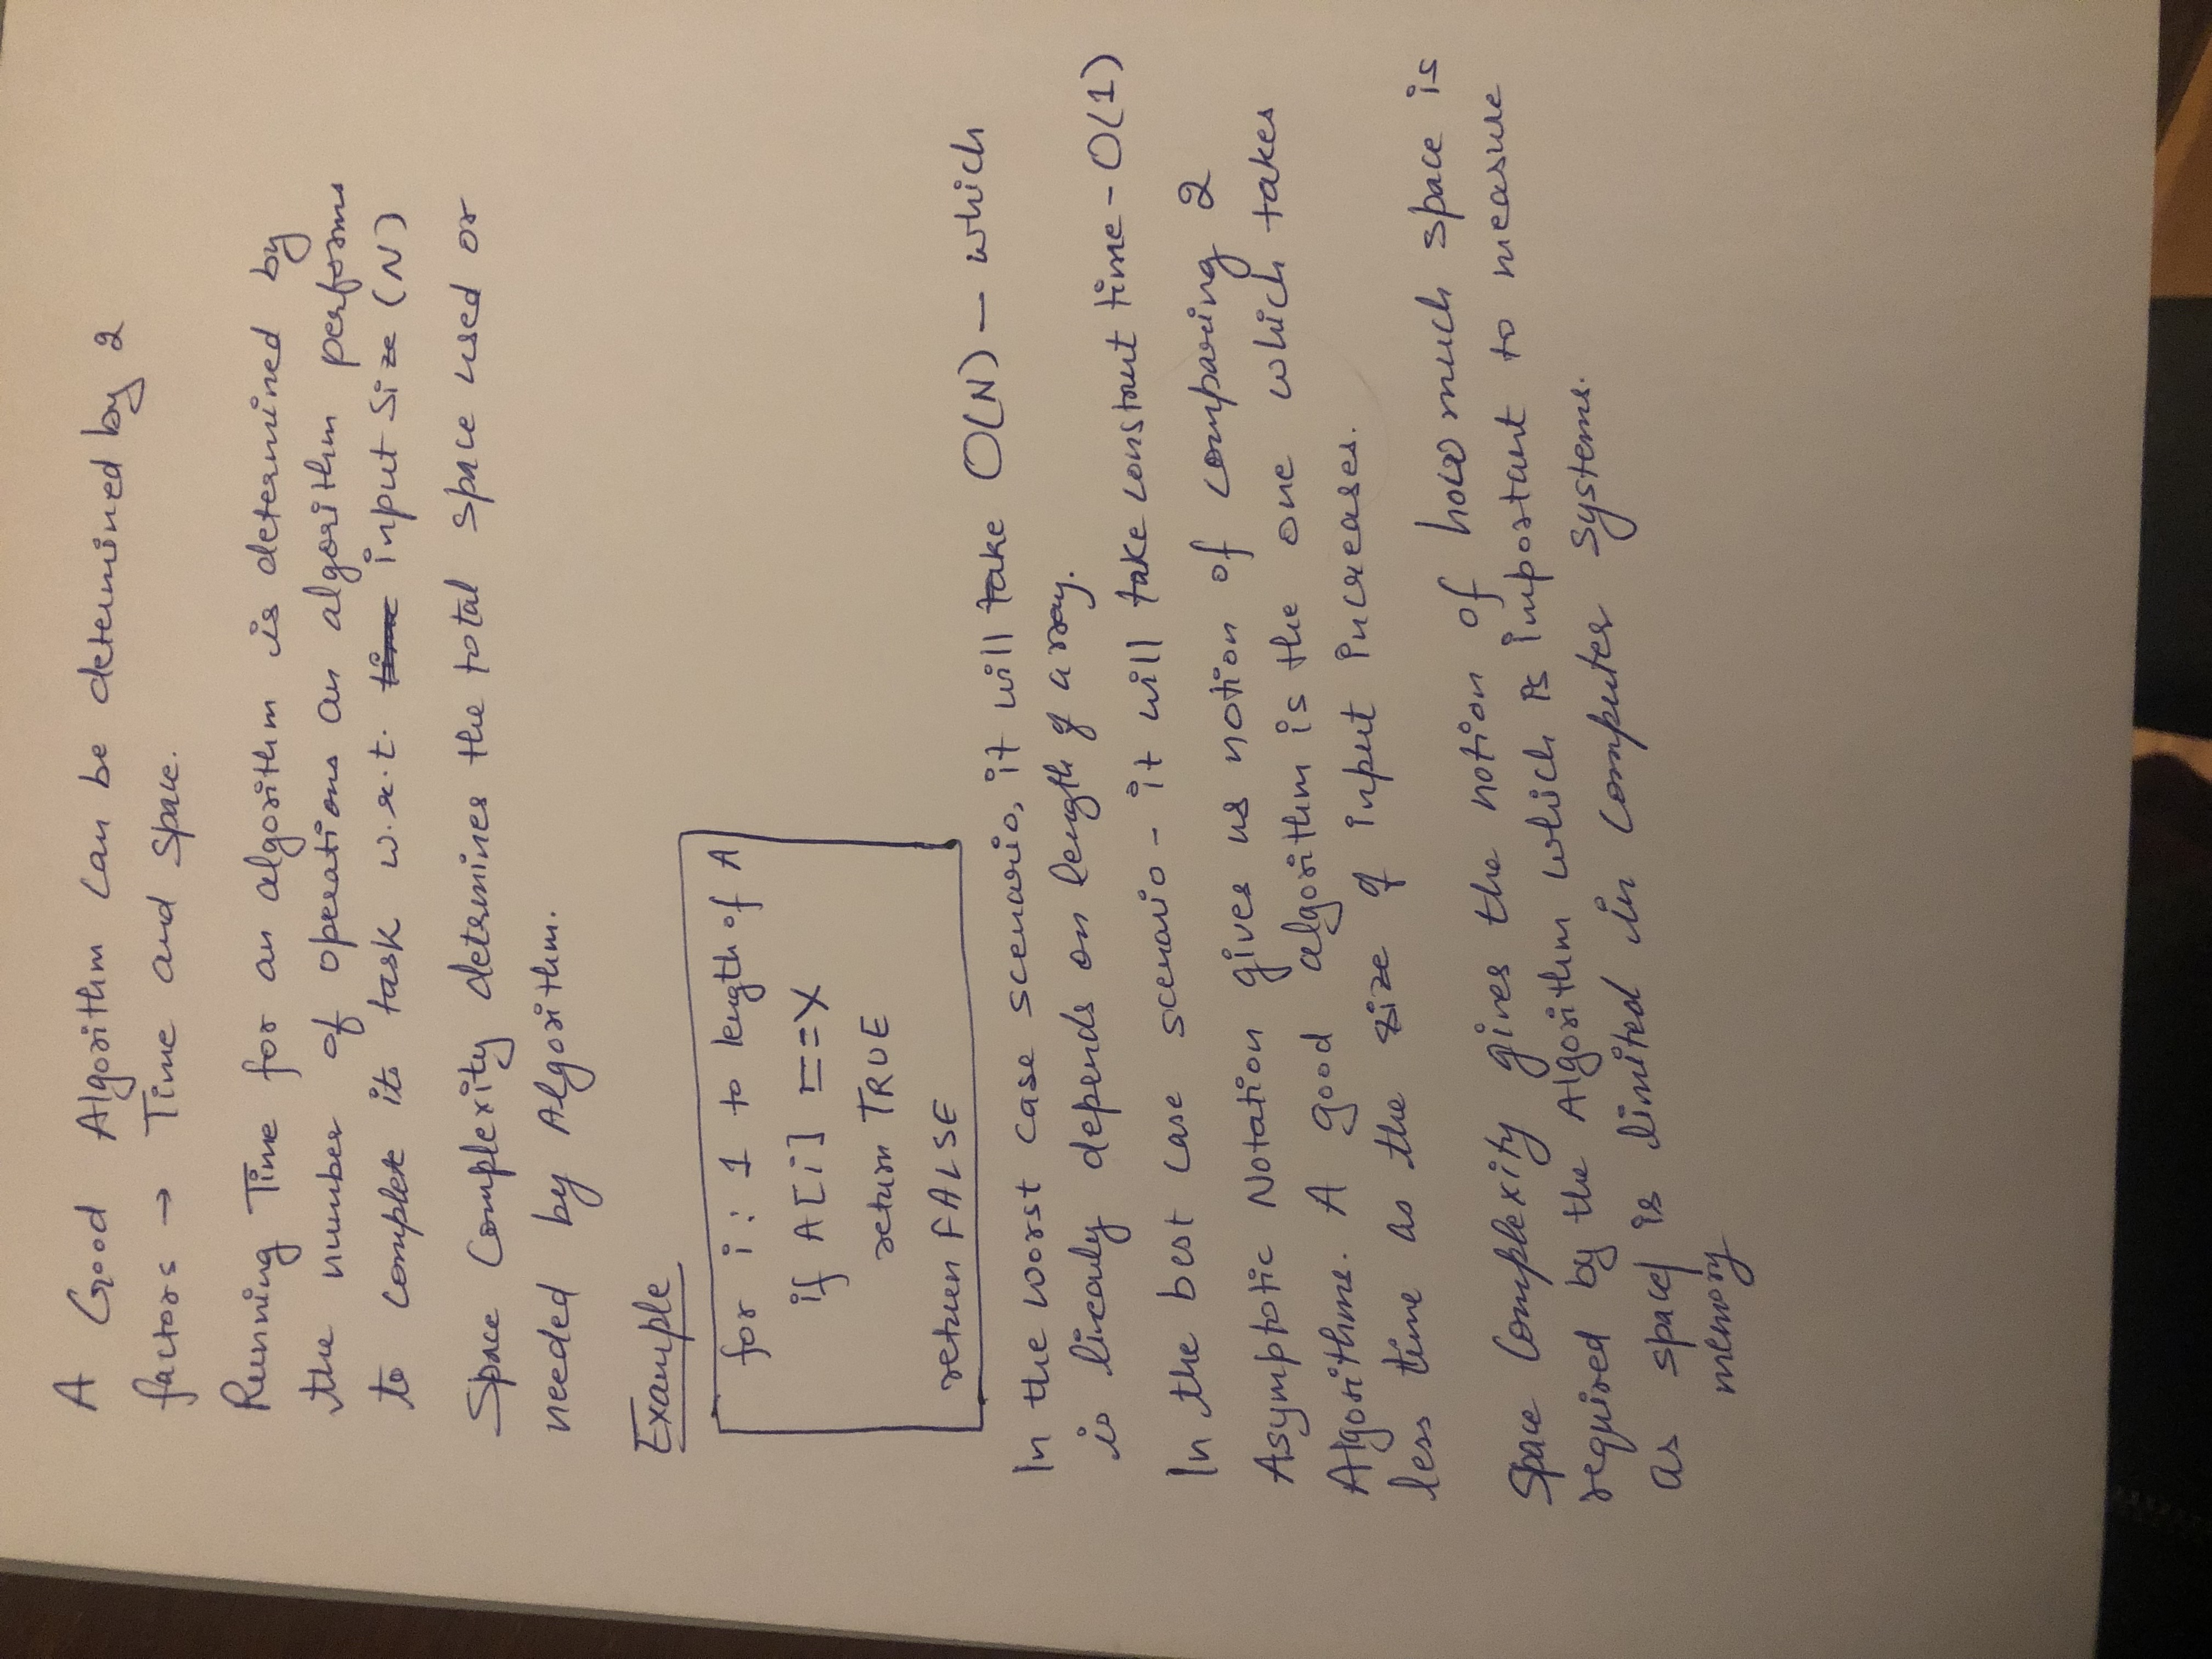 A Good Algorithm can be determined by 2
factors → Time and Space.
Running Time for an algorithm is determined by
the number of operations an algorithm performs
to complete its task w.r.t. time input size (N)
Space Complexity determines the total space used or
needed by Algorithm.
Example
for i : 1 to length of A
if A[i] ==X
return TRUE
return FALSE
In the worst case scenario, it will take O(N) – which
is linearly depends on length of array.
In the best case scenario – it will take constant time – O(1)
Asymptotic Notation gives us notion of comparing 2
Algorithms. A good algorithm is the one which takes
less time as the size of input increases.
Space Complexity gives the notion of how much space is
required by the Algorithm which is important to measure
as space/ is limited in computer systems.
memory